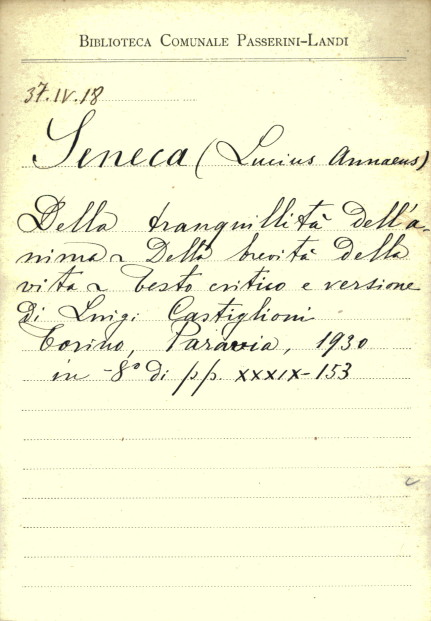 BIBLIOTECA COMUNALE PASSERINI-LANDI
37.IV.18
Seneca (Lucius Annaeus)
Della tranquillità dell'a-
nima ~ Della brevità della
vita ~ Testo critico e versione
di Luigi Castiglioni
Torino, Paravia, 1930
in -8° di pp. XXXIX-153